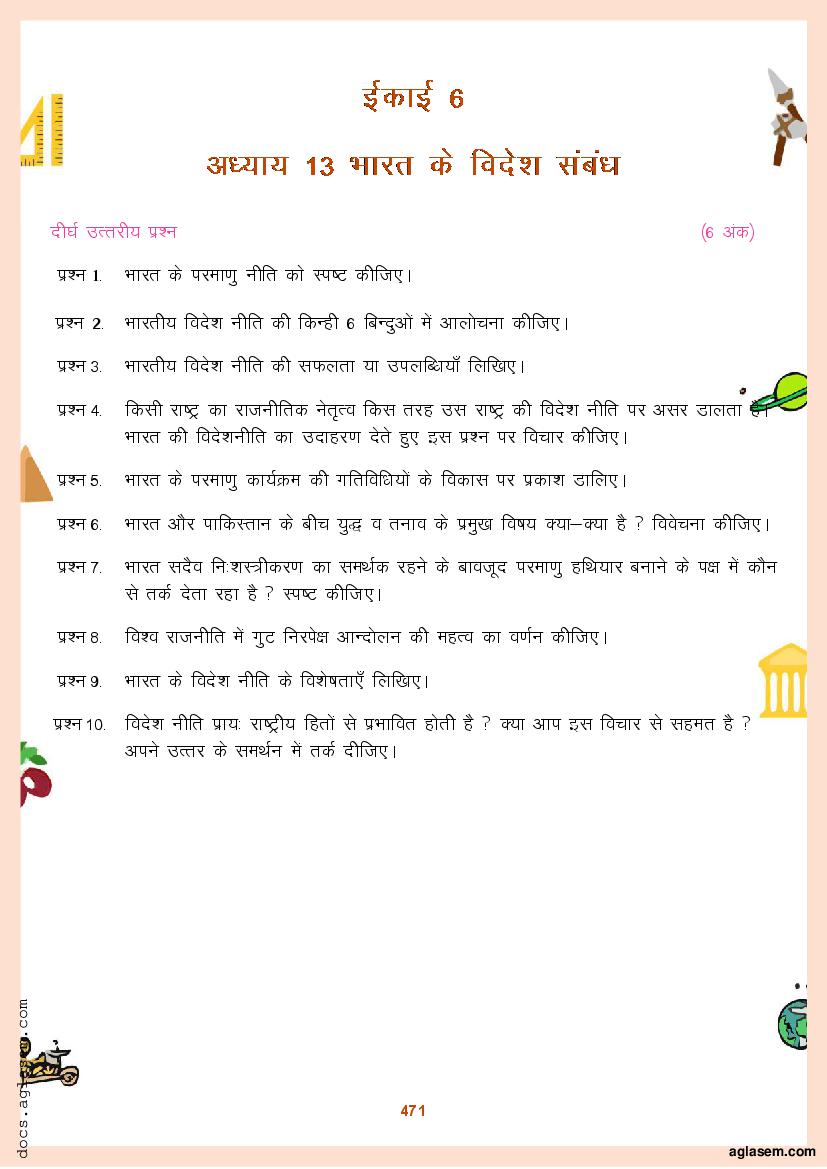 ईकाई 6
अध्याय 13 भारत के विदेश संबंध
दीर्घ उत्तरीय प्रश्न (6 अंक)
प्रश्न 1. भारत के परमाणु नीति को स्पष्ट कीजिए।
प्रश्न 2. भारतीय विदेश नीति की किन्ही 6 बिन्दुओं में आलोचना कीजिए।
प्रश्न 3. भारतीय विदेश नीति की सफलता या उपलब्धियाँ लिखिए।
प्रश्न 4. किसी राष्ट्र का राजनीतिक नेतृत्व किस तरह उस राष्ट्र की विदेश नीति पर असर डालता है।
भारत की विदेशनीति का उदाहरण देते हुए इस प्रश्न पर विचार कीजिए।
प्रश्न 5. भारत के परमाणु कार्यक्रम की गतिविधियों के विकास पर प्रकाश डालिए।
प्रश्न 6. भारत और पाकिस्तान के बीच युद्ध व तनाव के प्रमुख विषय क्या–क्या है ? विवेचना कीजिए।
प्रश्न 7. भारत सदैव निःशस्त्रीकरण का समर्थक रहने के बावजूद परमाणु हथियार बनाने के पक्ष में कौन
से तर्क देता रहा है ? स्पष्ट कीजिए।
प्रश्न 8. विश्व राजनीति में गुट निरपेक्ष आन्दोलन की महत्व का वर्णन कीजिए।
प्रश्न 9. भारत के विदेश नीति के विशेषताएँ लिखिए।
प्रश्न 10. विदेश नीति प्रायः राष्ट्रीय हितों से प्रभावित होती है ? क्या आप इस विचार से सहमत है ?
अपने उत्तर के समर्थन में तर्क दीजिए।
471
docs.aglasem.com
aglasem.com